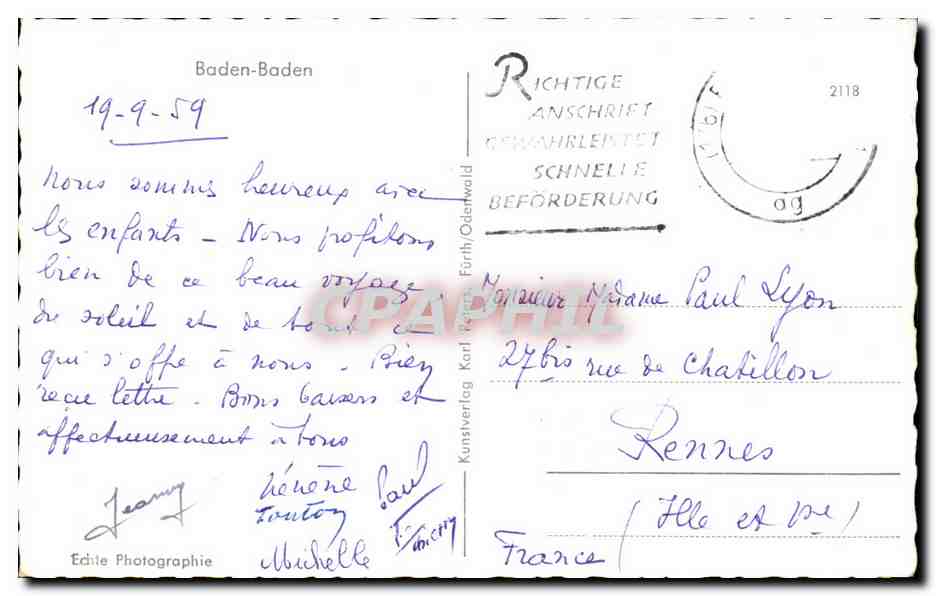 Baden-Baden
19-9-59
Nous sommes heureux avec
les enfants - Nous profitons
bien de ce beau voyage,
du soleil et de tout ce
qui s'offre à nous. Bien
reçue lettre. Bons baisers et
affectueusement à tous
Jeanny
Mémène Paul
Tonton Thierry
Michelle
Echte Photographie
Kunstverlag Karl Peters, Fürth/Odenwald
RICHTIGE
ANSCHRIFT
GEWÄHRLEISTET
SCHNELLE
BEFÖRDERUNG
ag
2118
CPAPHIL
Monsieur Madame Paul Lyon
27 bis rue de Chatillon
Rennes
(Ille et Vne)
France